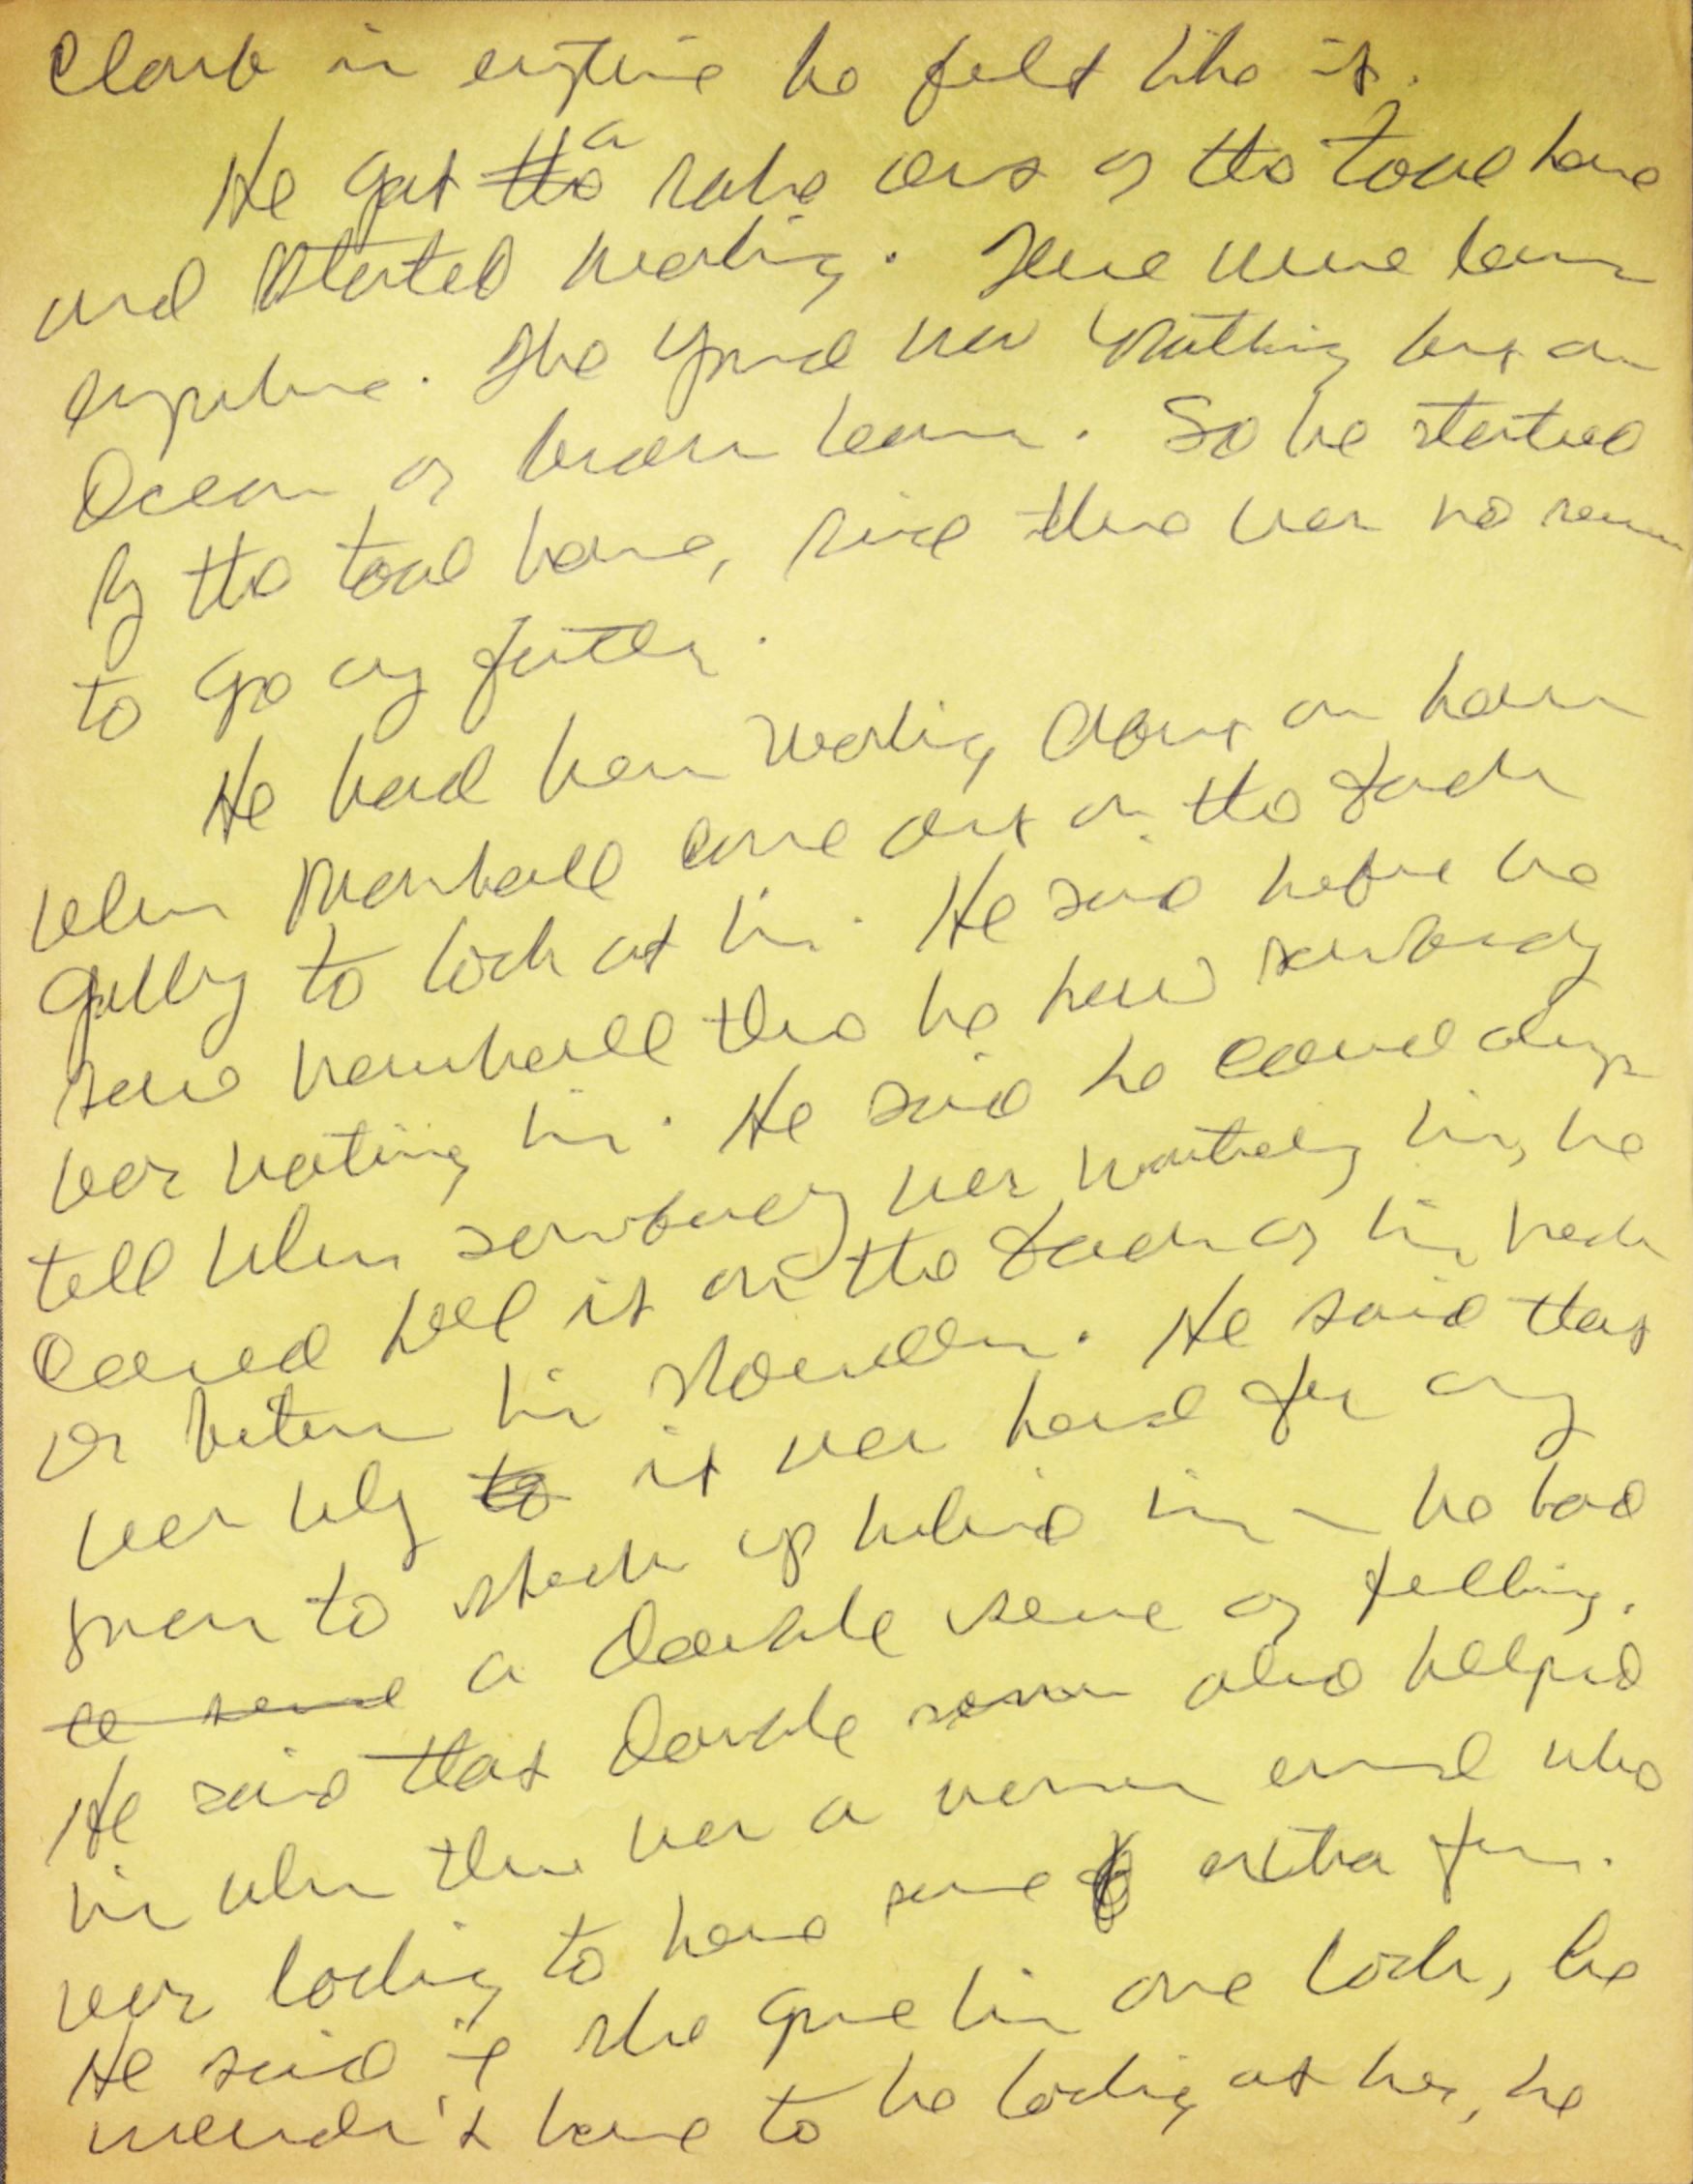 Clark in anytime he felt like it.
He got a rake out of the tool house
and started working. There were leaves
everywhere. The yard was nothing but an
ocean of brown leaves. So he started
by the tool house, since there was no reason
to go any further.
He had been working about an hour
when Marshall came out on the back
gallery to look at him. He said before he
saw Marshall there he knew somebody
was watching him. He said he could always
tell when somebody was watching him, he
could feel it on the back of his neck
or between his shoulders. He said that
was why it was hard for any
man to sneak up behind him – he had
a double sense of feeling.
He said that double sense also helped
him when there was a woman around who
was looking to have some extra fun.
He said if she gave him one look, he
wouldn't have to be looking at her, he